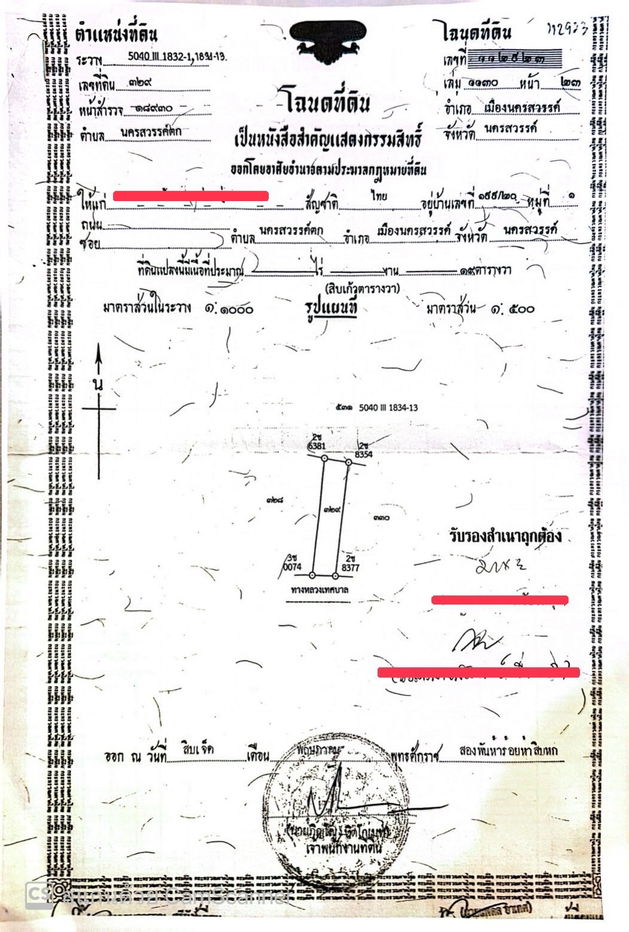 ตำแหน่งที่ดิน
ระวาง 5040 III 1832-1, 1834-13.
เลขที่ดิน ๓๒๙
หน้าสำรวจ ๑๘๙๓๐
ตำบล นครสวรรค์ตก
โฉนดที่ดิน
112923
เลขที่ ๑๑๒๙๒๓
เล่ม ๑๑๓๐ หน้า ๒๓
อำเภอ เมืองนครสวรรค์
จังหวัด นครสวรรค์
โฉนดที่ดิน
เป็นหนังสือสำคัญแสดงกรรมสิทธิ์
ออกโดยอาศัยอำนาจตามประมวลกฎหมายที่ดิน
ให้แก่ สัญชาติ ไทย อยู่บ้านเลขที่ ๑๙๙/๒๐ หมู่ที่ ๑
ถนน
ซอย ตำบล นครสวรรค์ตก อำเภอ เมืองนครสวรรค์ จังหวัด นครสวรรค์
ที่ดินแปลงนี้มีเนื้อที่ประมาณ ไร่ งาน ๑๙ ตารางวา
(สิบเก้าตารางวา)
มาตราส่วนในระวาง ๑:๑๐๐๐ รูปแผนที่ มาตราส่วน ๑:๕๐๐
น
๕๓๑ 5040 III 1834-13
2ช 6381
2ช 8354
๓๒๘
๓๒๙
๓๓๐
3ช 0074
2ช 8377
ทางหลวงเทศบาล
รับรองสำเนาถูกต้อง
ออก ณ วันที่ สิบเจ็ด เดือน พฤษภาคม พุทธศักราช สองพันห้าร้อยห้าสิบหก
เจ้าพนักงานที่ดิน
CS CamScanner